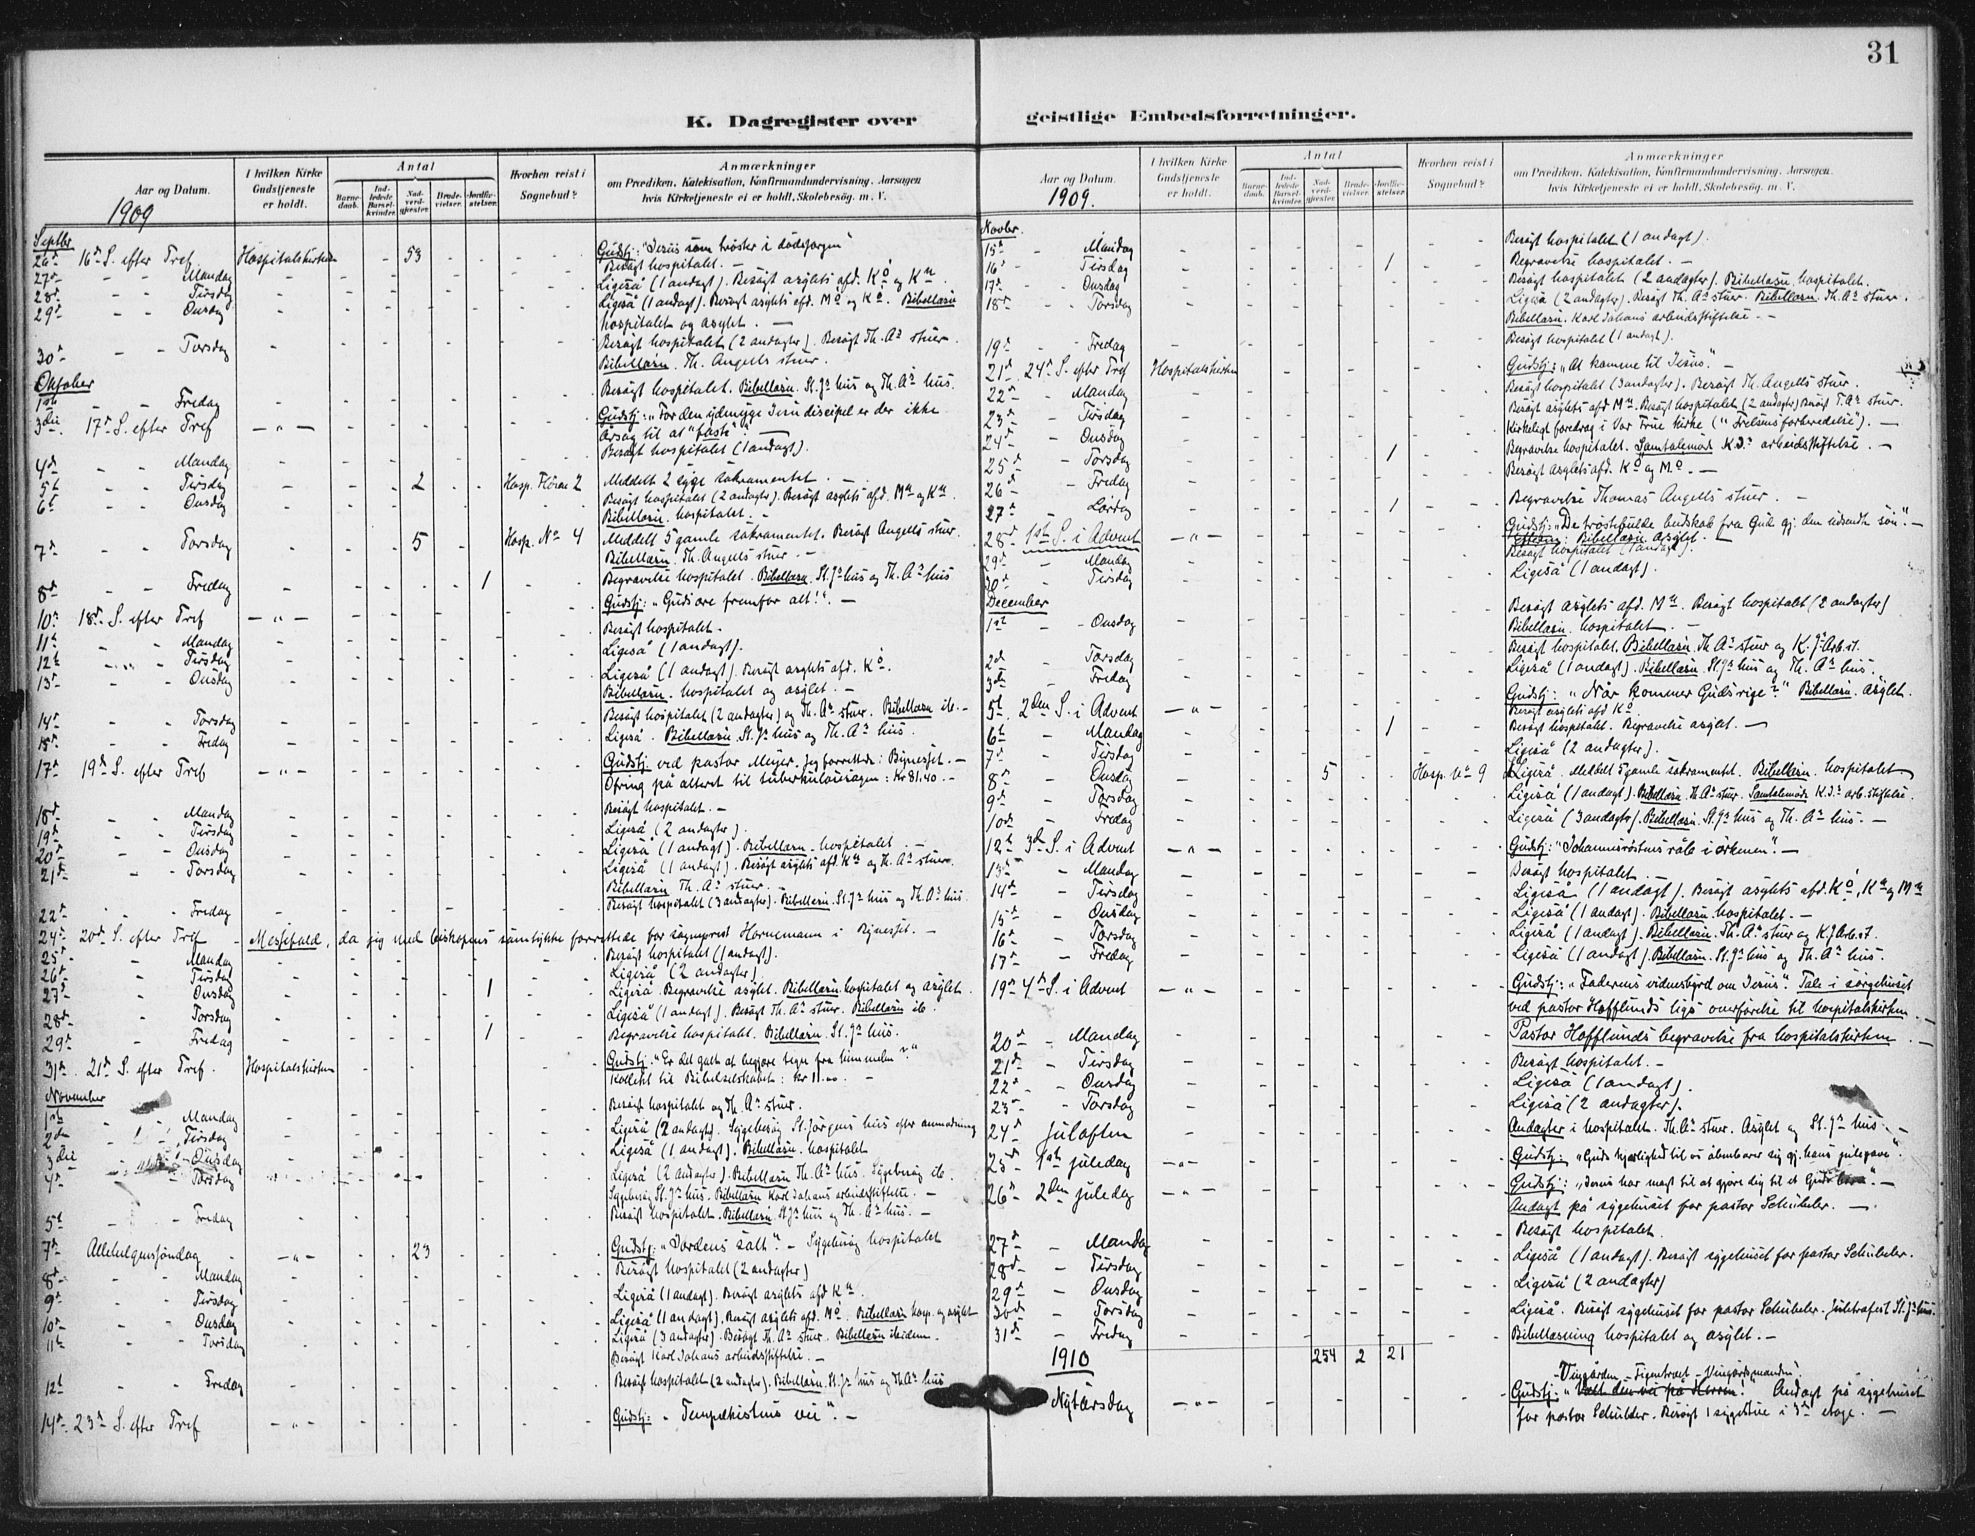 31
K. Dagregister over geistlige Embedsforretninger.
Aar og Datum.
I hvilken Kirke Gudstjeneste er holdt.
Antal
Barnedaab.
Indledede Barselkvinder.
Nadverdgjester.
Brudevielser.
Jordfæstelser.
Hvorhen reist i Sognebud?
Anmærkninger
om Prædiken, Katekisation, Konfirmandundervisning, Aarsagen
hvis Kirketjeneste ei er holdt, Skolebesög. m. V.
1909
Septbr
26de 16de S. efter Tref Hospitalskirken 53 Gudstj: "Jesus som trøster i dødssorgen"
27de Mandag Besøgt hospitalet. —
28de Tirsdag Ligeså (1 andagt). Besøgt asylets afd. Kø og Kn
29de Onsdag Ligeså (1 andagt). Besøgt asylets afd. Mø og Kø. Bibellæsn
hospitalet og asylet. —
30te Torsdag Besøgt hospitalet (2 andagter). Besøgt Th. As stuer.
Bibellæsn. Th. Angells stuer.
Oktober
1ste Fredag Besøgt hospitalet. Bibellæsn. St. Js hus og Th. As hus.
3die 17de S. efter Tref — " — Gudstj: "For den ydmyge Jesu discipel er der ikke
årsag til at "faste"." —
4de Mandag Besøgt hospitalet (1 andagt).
5te Tirsdag 2 Hosp. 2 Meddelt 2 syge sakramentet. —
6te Onsdag Besøgt hospitalet (2 andagter). Besøgt asylets afd. Mn og Kn.
Bibellæsn. hospitalet. —
7de Torsdag 5 Hosp. No 4 Meddelt 5 gamle sakramentet. Besøgt Angells stuer.
Bibellæsn. Th. Angells stuer. —
8de Fredag 1 Begravelse hospitalet. Bibellæsn. St. Js hus og Th. As hus
10de 18de S. efter Tref — " — Gudstj: "Guds ære fremfor alt!". —
11te Mandag Besøgt hospitalet.
12te Tirsdag Ligeså (1 andagt).
13de Onsdag Ligeså (1 andagt). Besøgt asylets afd. Kø.
Bibellæsn. hospitalet og asylet. —
14de Torsdag Besøgt hospitalet (2 andagter) og Th. As stuer. Bibellæsn ib. —
15de Fredag Ligeså. Bibellæsn. St. Js hus og Th. As hus.
17de 19de S. efter Tref — " — Gudstj. ved pastor Meyer. Jeg forrettede i Bynesset. —
Ofring på alteret til tuberkulosesagen: Kr 81.40. —
18de Mandag Besøgt hospitalet. —
19de Tirsdag Ligeså (2 andagter).
20de Onsdag Ligeså (1 andagt). Bibellæsn. hospitalet. —
21de Torsdag Ligeså (1 andagt). Besøgt asylets afd. Kn og Th. As stuer.
Bibellæsn Th. As stuer. —
22de Fredag Besøgt hospitalet (3 andagter). Bibellæsn. St. Js hus og Th. As hus.
24de 20de S. efter Tref - Messefald, da jeg med biskopens samtykke forrettede for sogneprest Hornemann i Bynesset. —
25de Mandag Besøgt hospitalet (1 andagt).
26de Tirsdag Ligeså (2 andagter)
27de Onsdag 1 Ligeså. Begravelse asylet. Bibellæsn. hospitalet og asylet.
28de Torsdag Ligeså (1 andagt). Besøgt Th. As stuer. Bibellæsn ib.
29de Fredag 1 Begravelse hospitalet. Bibellæsn. St. Js hus.
31te 21de S. efter Tref. Hospitalskirken Gudstj: "Er det galt at begjære tegn fra himmelen?"
Kollekt til Bibelselskabet: kr
November
1ste Mandag Besøgt hospitalet og Th. As stuer.
2den Tirsdag Ligeså (2 andagter). Sygebesøg St. Jørgens hus efter anmodning
3die Onsdag Ligeså (1 andagt). Bibellæsn. hospitalet
4de Torsdag Ligeså (2 andagter). Bibellæsn Th. As hus. Sygebesøg ib.
Sygebesøg St. Js hus. Bibellæsn Karl Johans arbeidsstiftelse. —
5te Fredag Besøgt hospitalet. Bibellæsn. St. Js hus og Th. As hus. —
7de Allehelgenssøndag — " — 23 Gudstj: "Jordens salt". — Sygebesøg hospitalet
8de Mandag Besøgt hospitalet (2 andagter)
9de Tirsdag Ligeså (1 andagt). Besøgt asylets afd Kn.
10de Onsdag Ligeså (1 andagt). Besøgt asylets afd. Mø. Bibellæsn hosp. og asylet
11te Torsdag Ligeså (3 andagter). Besøgt Th. As stuer. Bibellæsn ibidem.
Besøgt Karl Johans arbeidsstiftelse. —
12te Fredag Besøgt hospitalet (2 andagter). Bibellæsn. St. Js hus og Th As hus
14de 23de S. efter Tref — " — Gudstj: " —
Aar og Datum.
I hvilken Kirke Gudstjeneste er holdt.
Antal
Barnedaab.
Indledede Barselkvinder.
Nadverdgjester.
Brudevielser.
Jordfæstelser.
Hvorhen reist i Sognebud?
Anmærkninger
om Prædiken, Katekisation, Konfirmandundervisning, Aarsagen
hvis Kirketjeneste ei er holdt, Skolebesög. m. V.
1909.
Novbr.
15de Mandag Besøgt hospitalet (1 andagt).
16de Tirsdag 1 Begravelse hospitalet. —
17de Onsdag Besøgt hospitalet (2 andagter). Bibellæsn. hospitalet.
18de Torsdag Ligeså (2 andagter). Besøgt Th. As stuer. Bibellæsn. Th. As stuer.
Bibellæsn. Karl Johans arbeidsstiftelse. —
19de Fredag Besøgt hospitalet (1 andagt).
21de 24de S. efter Tref Hospitalskirken Gudstj: "At komme til Jesus". —
22de Mandag Besøgt hospitalet (3 andagter). Besøgt Th. Angells stuer.
23de Tirsdag Besøgt asylets afd Mn. Besøgt hospitalet (2 andagter) Besøgt T. As stuer.
24de Onsdag Kirkeligt foredrag i Vor Frue kirke ("Frelsens forberedelse"). —
25de Torsdag 1 Begravelse hospitalet. Samtalemøde K. Js arbeidsstiftelse. —
26de Fredag Besøgt asylets afd. Kø og Mø. —
27de Lørdag 1 Begravelse Thomas Angells stuer. —
28de 1ste S. i Advent — " — Gudstj: "De trøstefulde budskab fra Gud gj. den udsendte søn". —
Bibellæsn. asylet. —
29de Mandag Besøgt hospitalet (1 andagt).
30te Tirsdag Ligeså (1 andagt).
December
1ste Onsdag Besøgt asylets afd. Mn. Besøgt hospitalet (2 andagter)
Bibellæsn. hospitalet. —
2den Torsdag Besøgt hospitalet. Bibellæsn. Th. As stuer og K. Js Arb. st.
3die Fredag Ligeså (1 andagt). Bibellæsn. St. Js hus og Th. As hus.
5te 2den S. i Advent — " — Gudstj: "Når kommer Guds rige?" Bibellæsn. asylet.
Besøgt asylets afd Kø
6te Mandag 1 Besøgt hospitalet. Begravelse asylet. —
7de Tirsdag Ligeså (2 andagter).
8de Onsdag 5 Hosp. No 9 Ligeså. Meddelt 5 gamle sakramentet. Bibellæsn. hospitalet
9de Torsdag Ligeså (1 andagt). Bibellæsn Th. As stuer. Samtalemøde K. Js arb. stiftelse.
10de Fredag Ligeså (3 andagter). Bibellæsn. St. Js hus og Th. As hus. —
12te 3de S. i Advent — " — Gudstj: "Johannesrøstens råb i ørkenen". —
13de Mandag Besøgt hospitalet. —
14de Tirsdag Ligeså (1 andagt). Besøgt asylets afd. Kø, Kn og Mn
15de Onsdag Ligeså (1 andagt). Bibellæsn. hospitalet. —
16de Torsdag Ligeså (1 andagt). Bibellæsn. Th. As stuer og K. J Arb. st.
17de Fredag Ligeså (1 andagt). Bibellæsn. St. Js hus og Th. As hus.
19de 4de S. i Advent — " — Gudstj: "Faderens vidnesbyrd om Jesus". Tale i sørgehuset
ved pastor Hofflunds ligs overførelse til hospitalskirken. —
20de Mandag Pastor Hofflunds begravelse fra hospitalskirken. —
21de Tirsdag Besøgt hospitalet. —
22de Onsdag Ligeså (1 andagt).
23de Torsdag Ligeså (2 andagter).
24de Juleaften Andagter i hospitalet. Th. As stuer. Asylet og St. Js hus. —
25de 1ste juledag — " — Gudstj: "Guds kjærlighed til os åbenbarer sig gj. hans julegave".
26de 2den juledag — " — Gudstj: "Jesus har magt til at gjøre dig til et Guds barn". —
Andagt på sygehuset for pastor Schübeler. —
27de Mandag Besøgt hospitalet.
28de Tirsdag Ligeså (1 andagt). Besøgt sygehuset for pastor Schübeler.
29de Onsdag Ligeså (2 andagter)
30de Torsdag Ligeså. Besøgt sygehuset for pastor Schübeler. Juletræfest St. Js hus.
31te Fredag Bibellæsning hospitalet og asylet. —
254 2 21
1910
Vingården - Figentræet - Vingårdsmanden
Nytårsdag — " — Gudstj: " Andagt på sygehuset
for pastor Schübeler. Besøgt 1 sygestue i 3de etage. —